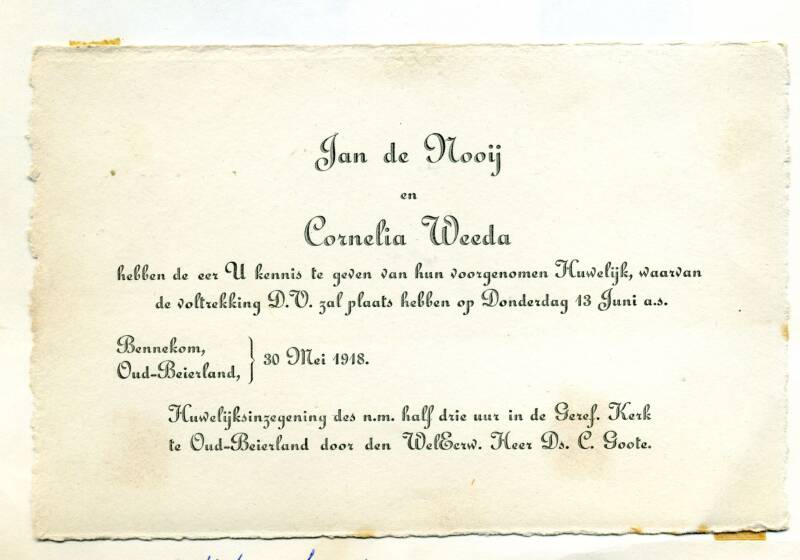 Jan de Nooij
en
Cornelia Weeda
hebben de eer U kennis te geven van hun voorgenomen Huwelijk, waarvan
de voltrekking D.V. zal plaats hebben op Donderdag 13 Juni a.s.
Bennekom,
Oud-Beierland, } 30 Mei 1918.
Huwelijksinzegening des n.m. half drie uur in de Geref. Kerk
te Oud-Beierland door den WelEerw. Heer Ds. C. Goote.